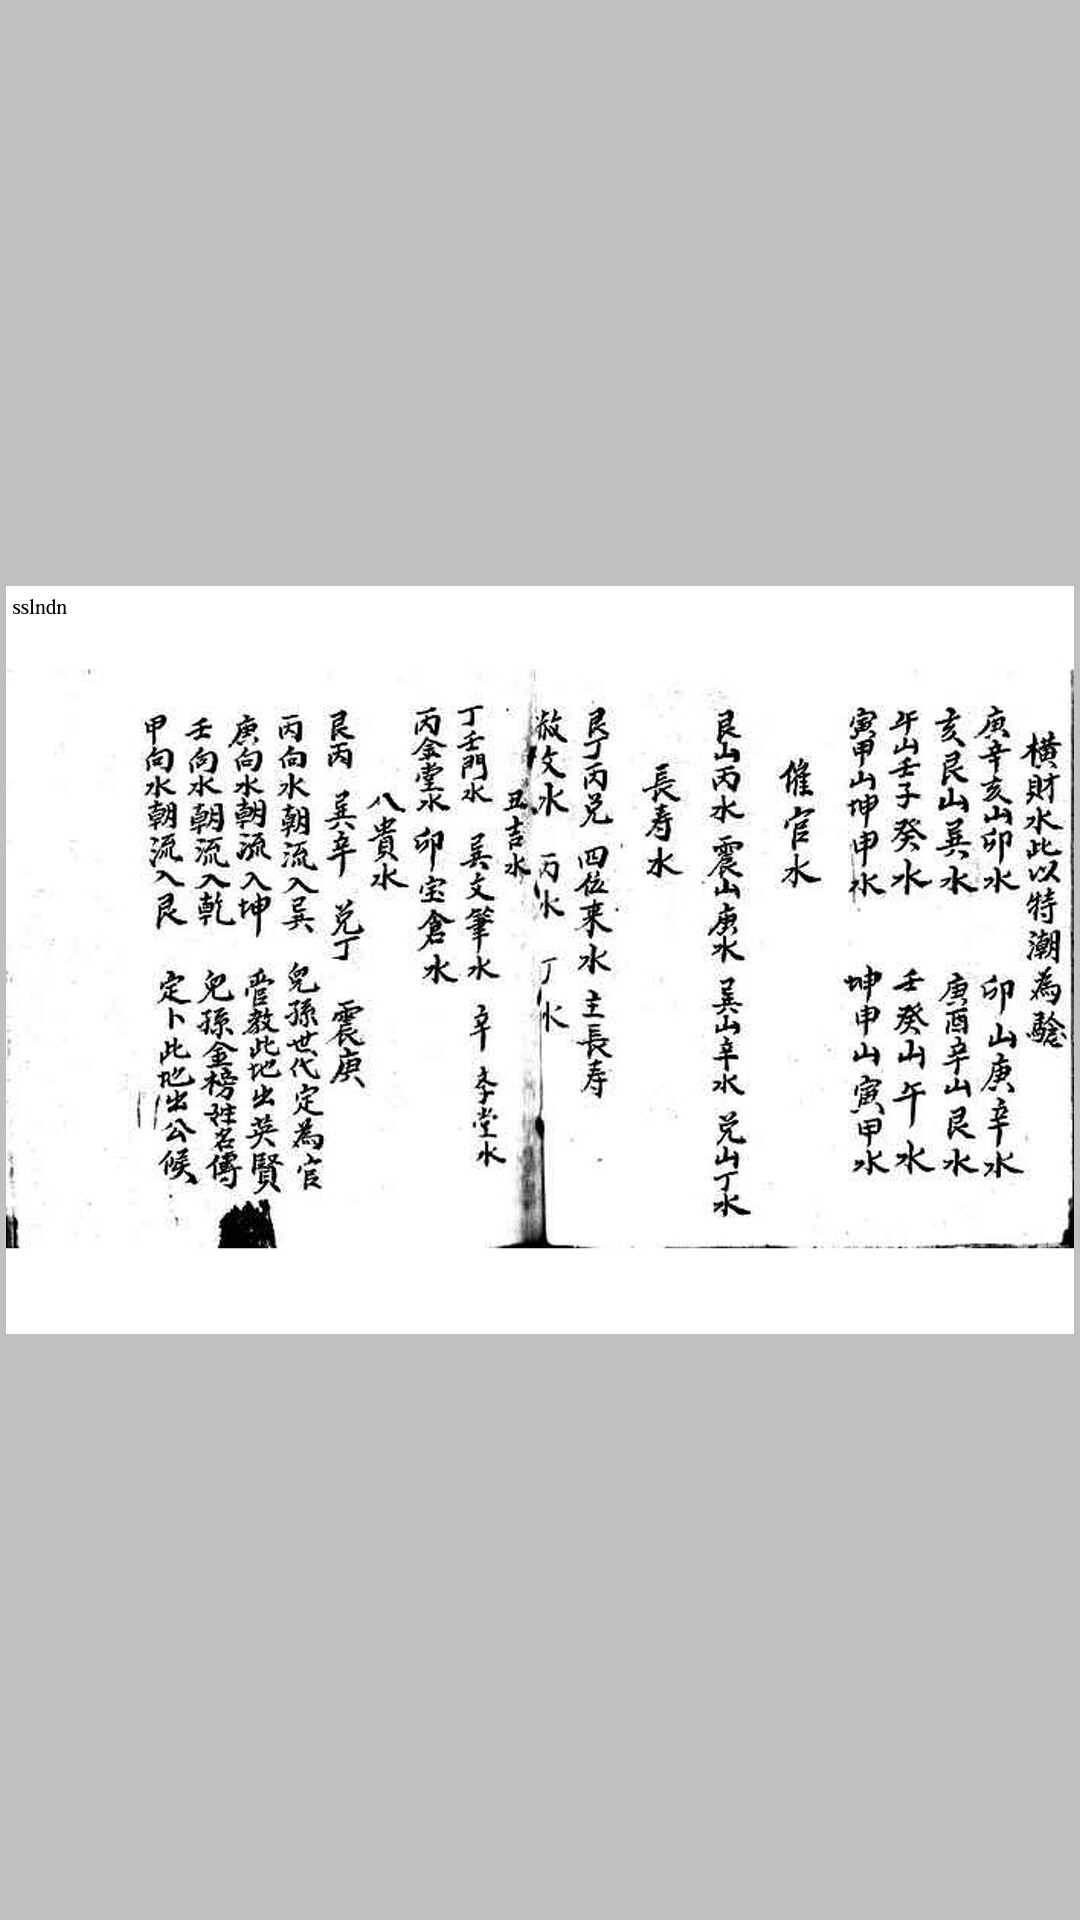 sslndn
橫財水此以特潮為驗
庚辛亥山卯水 卯山庚辛水
亥艮山巽水 庚酉辛山艮水
午山壬子癸水 壬癸山午水
寅甲山坤申水 坤申山寅甲水
催官水
艮山丙水 震山庚水 巽山辛水 兑山丁水
長寿水
艮丁丙兑 四位来水 主長寿
赦文水 丙水 丁水
丑吉水
丁壬門水 巽文筆水 辛 堂水
丙金堂水 卯宝倉水
八貴水
艮丙 巽辛 兑丁 震庚
丙向水朝流入巽 兒孫世代定為官
庚向水朝流入坤 管教此地出英賢
壬向水朝流入乾 兒孫金榜姓名傳
甲向水朝流入艮 定卜此地出公候